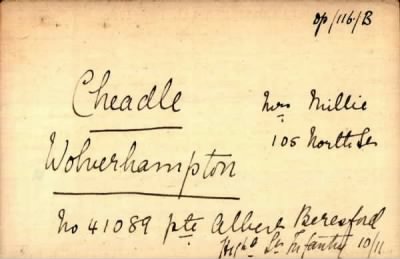 Dp/116/B
Cheadle
Mrs Millie
105 North St
Wolverhampton
No 41089 pte Albert Beresford
High. L. Infantry 10/11